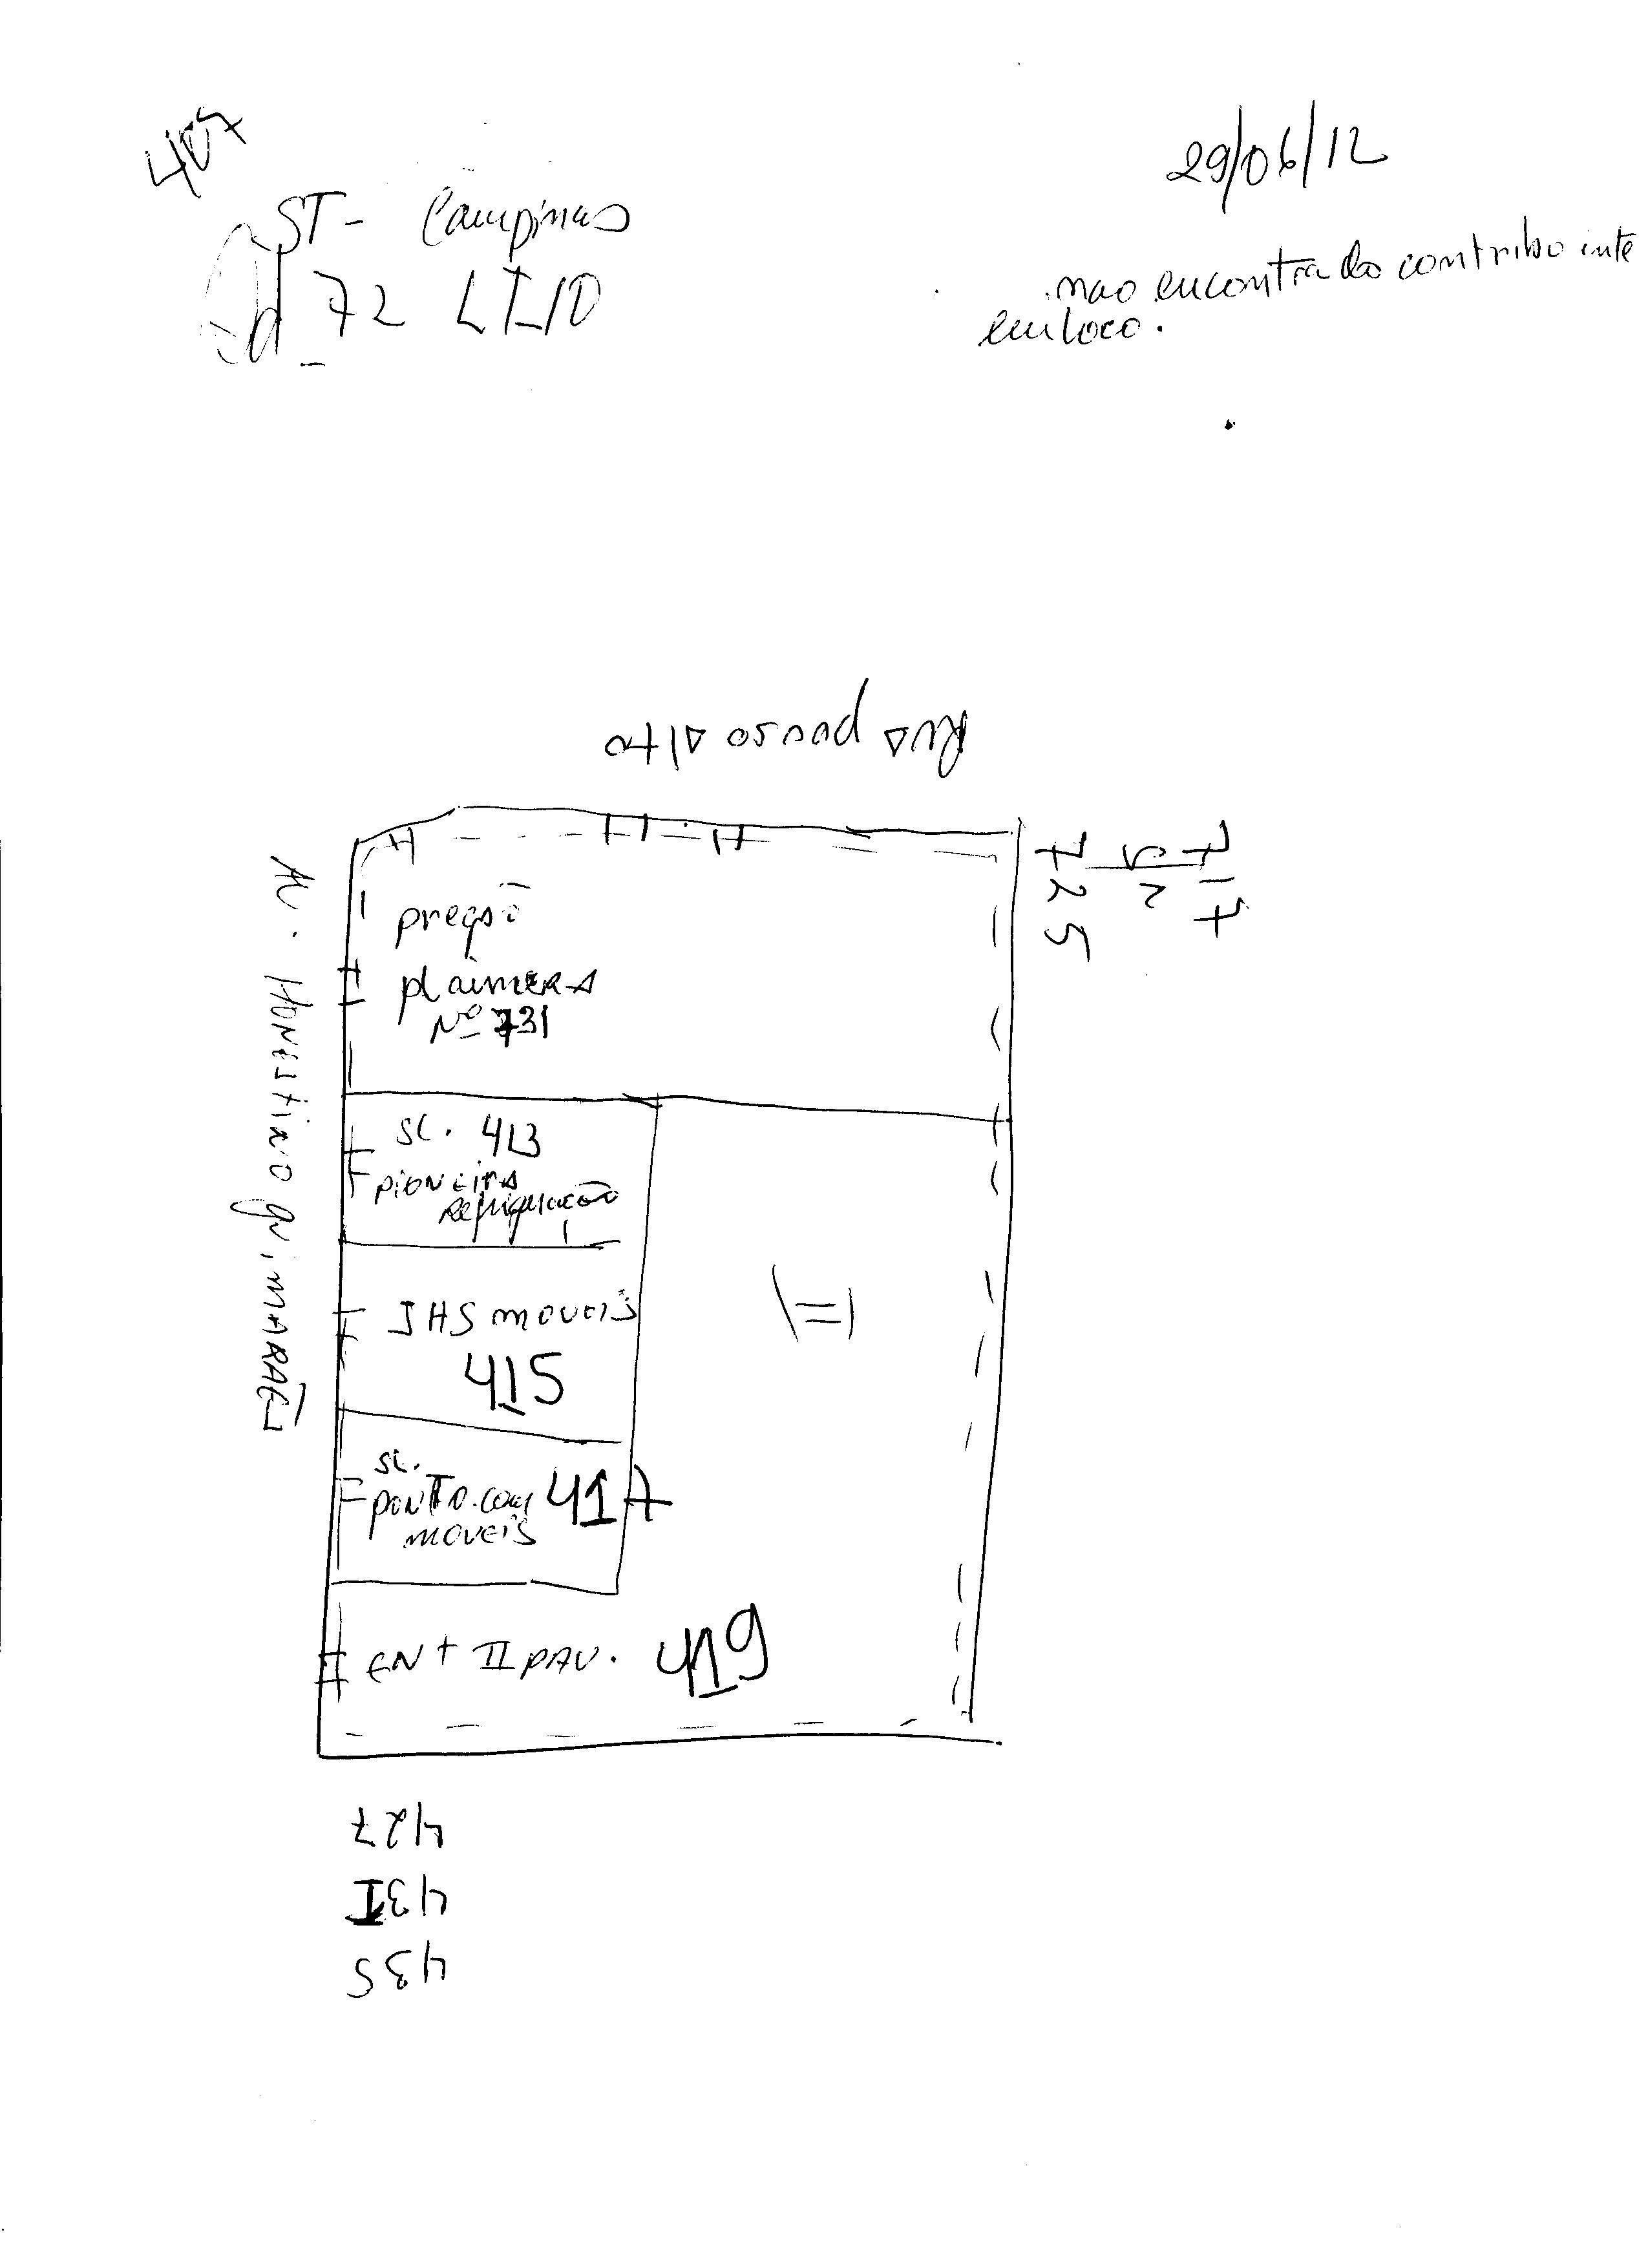 407
29/06/12
ST- Campinas
Qd 72 LT-10
nao encontrado contribo inte
em loco.
Rua pouso alto
717
725
Av. HONESTINO guimARAES
pregão
plaimERA
Nº 731
SL. 413
PIONEIRA
Refrigeração
JHS moveis
415
SL.
PONTO.com 417
moveis
ENT II PAV. 419
427
431
435